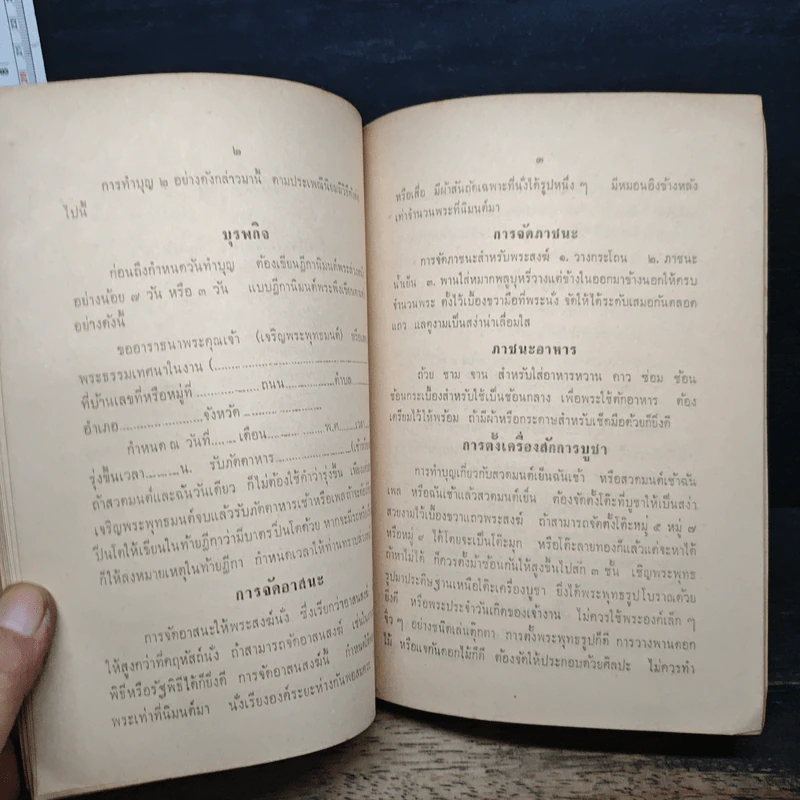 ๒
การทำบุญ ๒ อย่างดังกล่าวมานี้ ตามประเพณีนิยมมีวิธี
ไปนี้
บุรพกิจ
ก่อนถึงกำหนดวันทำบุญ ต้องเขียนฎีกานิมนต์พระ
อย่างน้อย ๗ วัน หรือ ๓ วัน แบบฎีกานิมนต์พระพึงเขียน
อย่างดังนี้
ขออาราธนาพระคุณเจ้า (เจริญพระพุทธมนต์)
พระธรรมเทศนาในงาน (
ที่บ้านเลขที่หรือหมู่ที่ ถนน ตำบล
อำเภอ จังหวัด
กำหนด ณ วันที่ เดือน พ.ศ. เวลา
รุ่งขึ้นเวลา น. รับภัตตาหาร
ถ้าสวดมนต์และฉันวันเดียว ก็ไม่ต้องใช้คำว่ารุ่งขึ้น เพียง
เจริญพระพุทธมนต์จบแล้วรับภัตตาหารเช้าหรือเพล
ปิ่นโตให้เขียนในท้ายฎีกาว่ามีบาตรปิ่นโตด้วย
ก็ให้ลงหมายเหตุในท้ายฎีกา กำหนดเวลาให้ท่านทราบ
การจัดอาสนะ
การจัดอาสนะให้พระสงฆ์นั่ง ซึ่งเรียกว่าอาสนสงฆ์
ให้สูงกว่าที่คฤหัสถ์นั่ง ถ้าสามารถจัดอาสนสงฆ์ เช่นใน
พิธีหรือรัฐพิธีได้ก็ยิ่งดี การจัดอาสนสงฆ์นี้
พระเท่าที่นิมนต์มา นั่งเรียงองค์ระยะห่างกันพอสมควร
๓
หรือเสื่อ มีผ้าสันถัตเฉพาะที่นั่งได้รูปหนึ่ง ๆ มีหมอนอิงข้างหลัง
เท่าจำนวนพระที่นิมนต์มา
การจัดภาชนะ
การจัดภาชนะสำหรับพระสงฆ์ ๑. วางกระโถน ๒. ภาชนะ
น้ำเย็น ๓. พานใส่หมากพลูบุหรี่วางแต่ข้างในออกมาข้างนอกให้ครบ
จำนวนพระ ตั้งไว้เบื้องขวามือที่พระนั่ง จัดให้ได้ระดับเสมอกันตลอด
แถว แลดูงามเป็นสง่าน่าเลื่อมใส
ภาชนะอาหาร
ถ้วย ชาม จาน สำหรับใส่อาหารหวาน คาว ช่อม ช้อน
ช้อนกระเบื้องสำหรับใช้เป็นช้อนกลาง เพื่อพระใช้ตักอาหาร ต้อง
เตรียมไว้ให้พร้อม ถ้ามีผ้าหรือกระดาษสำหรับเช็ดมือด้วยก็ยิ่งดี
การตั้งเครื่องสักการบูชา
การทำบุญเกี่ยวกับสวดมนต์เย็นฉันเช้า หรือสวดมนต์เช้าฉัน
เพล หรือฉันเช้าแล้วสวดมนต์เย็น ต้องจัดตั้งโต๊ะที่บูชาให้เป็นสง่า
สวยงามไว้เบื้องขวาแถวพระสงฆ์ ถ้าสามารถจัดตั้งโต๊ะหมู่ ๕ หมู่ ๗
หรือหมู่ ๙ ได้โดยจะเป็นโต๊ะมุก หรือโต๊ะลายทองก็แล้วแต่จะหาได้
ถ้าหาไม่ได้ ก็ควรตั้งม้าซ้อนกันให้สูงขึ้นไปสัก ๓ ชั้น เชิญพระพุทธ
รูปมาประดิษฐานเหนือโต๊ะเครื่องบูชา ยิ่งได้พระพุทธรูปโบราณด้วย
ยิ่งดี หรือพระประจำวันเกิดของเจ้างาน ไม่ควรใช้พระองค์เล็ก ๆ
จิ๋ว ๆ อย่างชนิดเล่นตุ๊กตา การตั้งพระพุทธรูปก็ดี การวางพานดอก
ไม้ หรือแจกันดอกไม้ก็ดี ต้องจัดให้ประกอบด้วยศิลปะ ไม่ควรทำ